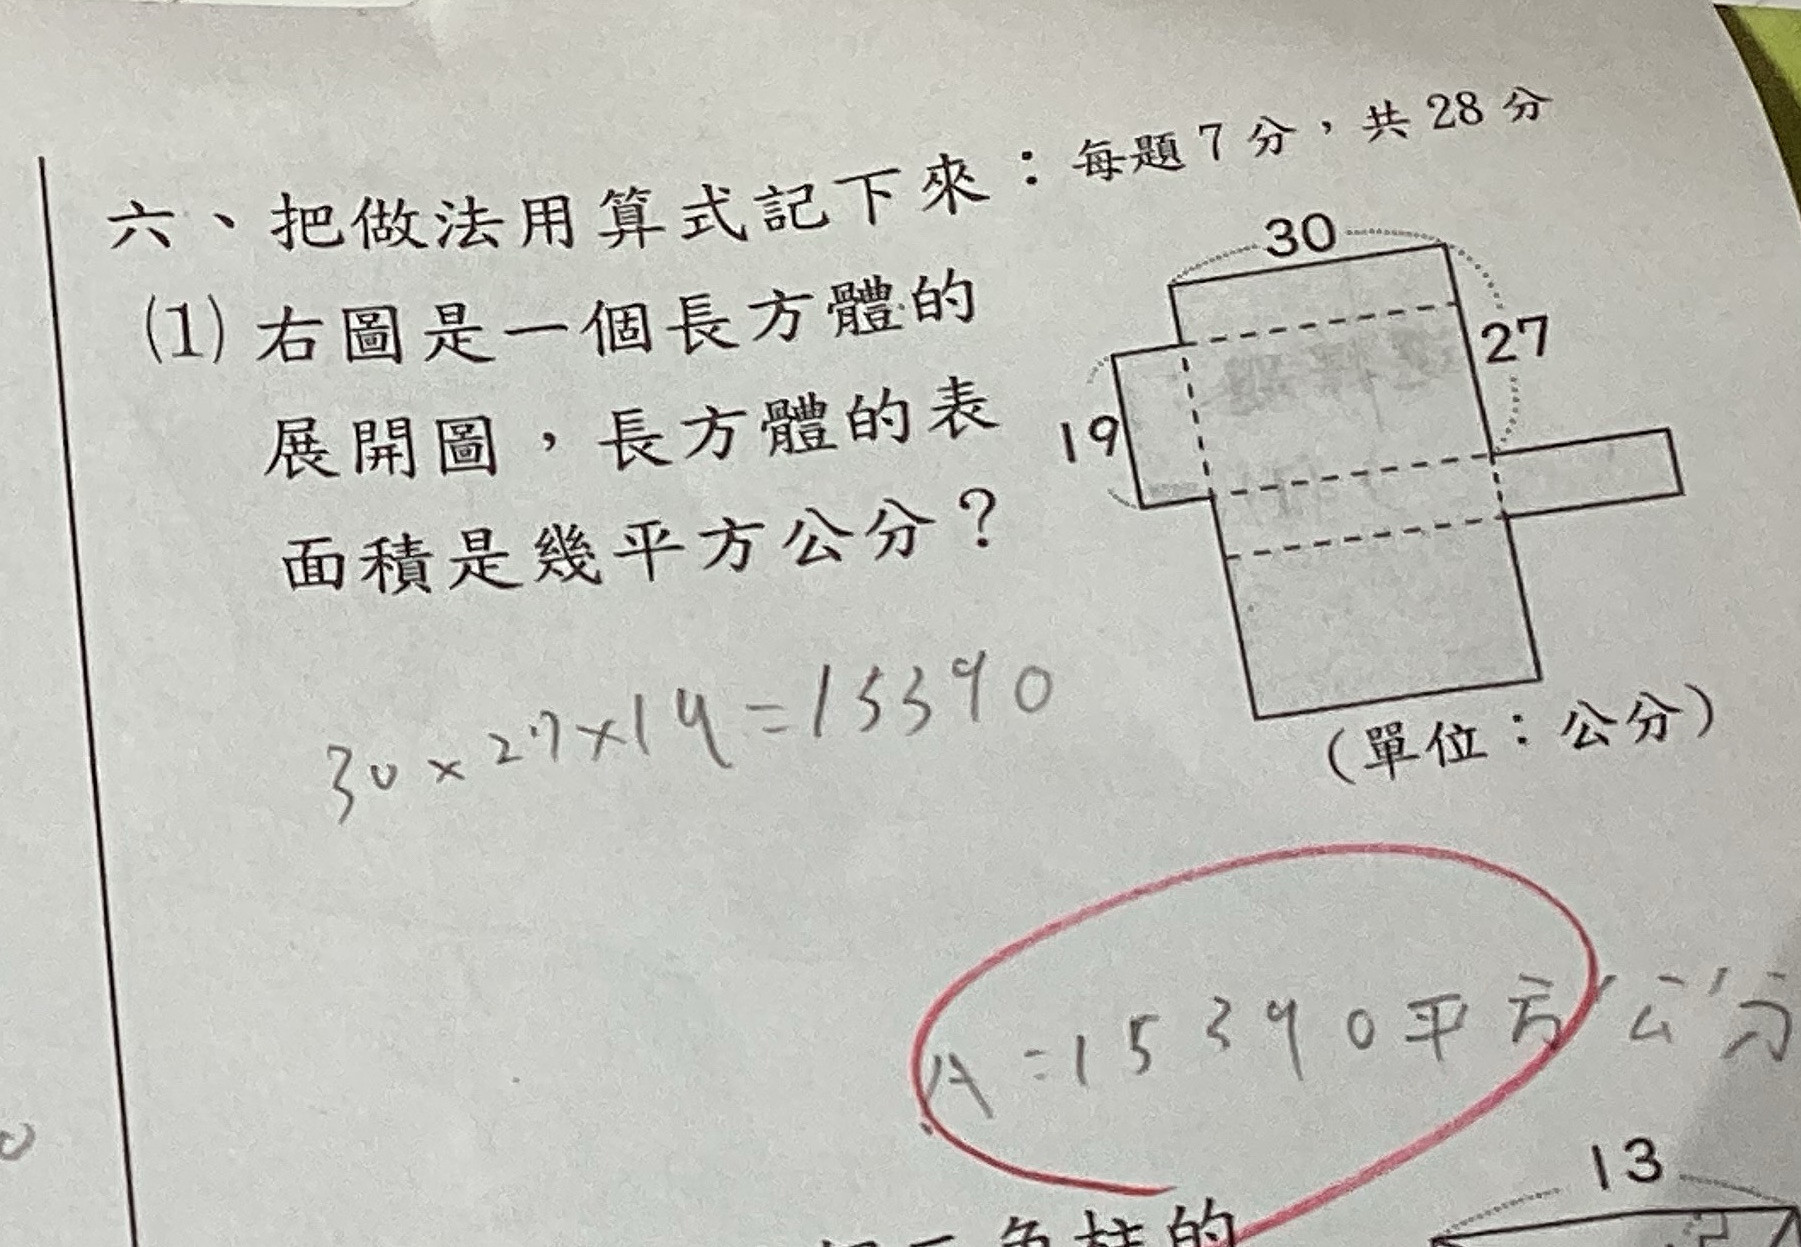 六、把做法用算式記下來：每題7分，共28分
(1)右圖是一個長方體的
展開圖，長方體的表
面積是幾平方公分？
30
27
19
(單位：公分)
30×27×19=15390
A=15390平方公分
13
角柱的